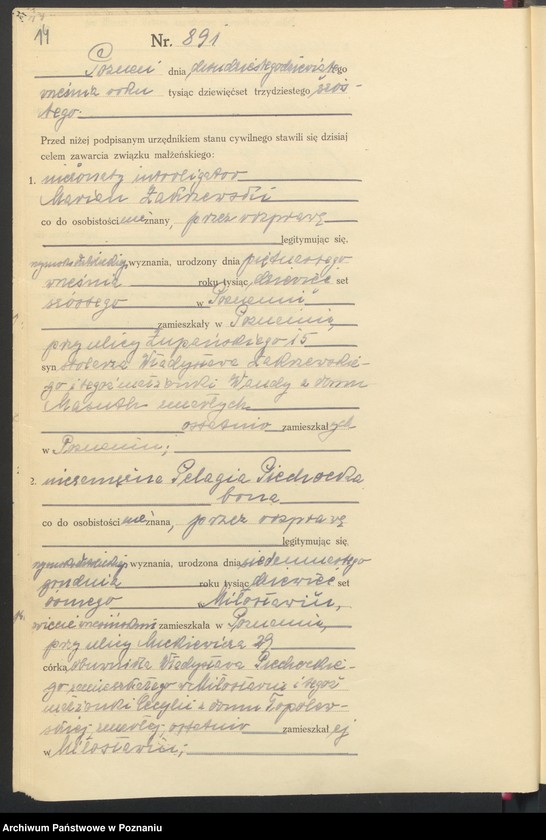 14
Nr. 891
Poznań dnia dwudziestego dziewiątego
września roku tysiąc dziewięćset trzydziestego szós-
tego.
Przed niżej podpisanym urzędnikiem stanu cywilnego stawili się dzisiaj
celem zawarcia związku małżeńskiego:
1. nieżonaty introligator
Marian Zakrzewski
co do osobistości nieznany, przez rozprawę
legitymując się,
rzymskokatolickiego wyznania, urodzony dnia piętnastego
września roku tysiąc dziewięć set
szóstego w Poznaniu
zamieszkały w Poznaniu,
przy ulicy Żupańskiego 15
syn stolarza Władysława Zakrzewskie-
go i tegoż małżonki Wandy z domu
zmarłych
ostatnio zamieszkałych
w Poznaniu;
2. niezamężna Pelagia Piechocka
bona
co do osobistości nieznana, przez rozprawę
legitymując się
wyznania, urodzona dnia siedemnastego
grudnia roku tysiąc dziewięć set
ósmego w Miłosławiu,
zamieszkała w Poznaniu,
przy ulicy Mickiewicza 29
córka Władysława Piechockie-
go zamieszkałego w Miłosławiu i tegoż
małżonki Cecylii z domu Topolew-
skiej zmarłej, ostatnio zamieszkałej
w Miłosławiu;
Archiwum Państwowe w Poznaniu